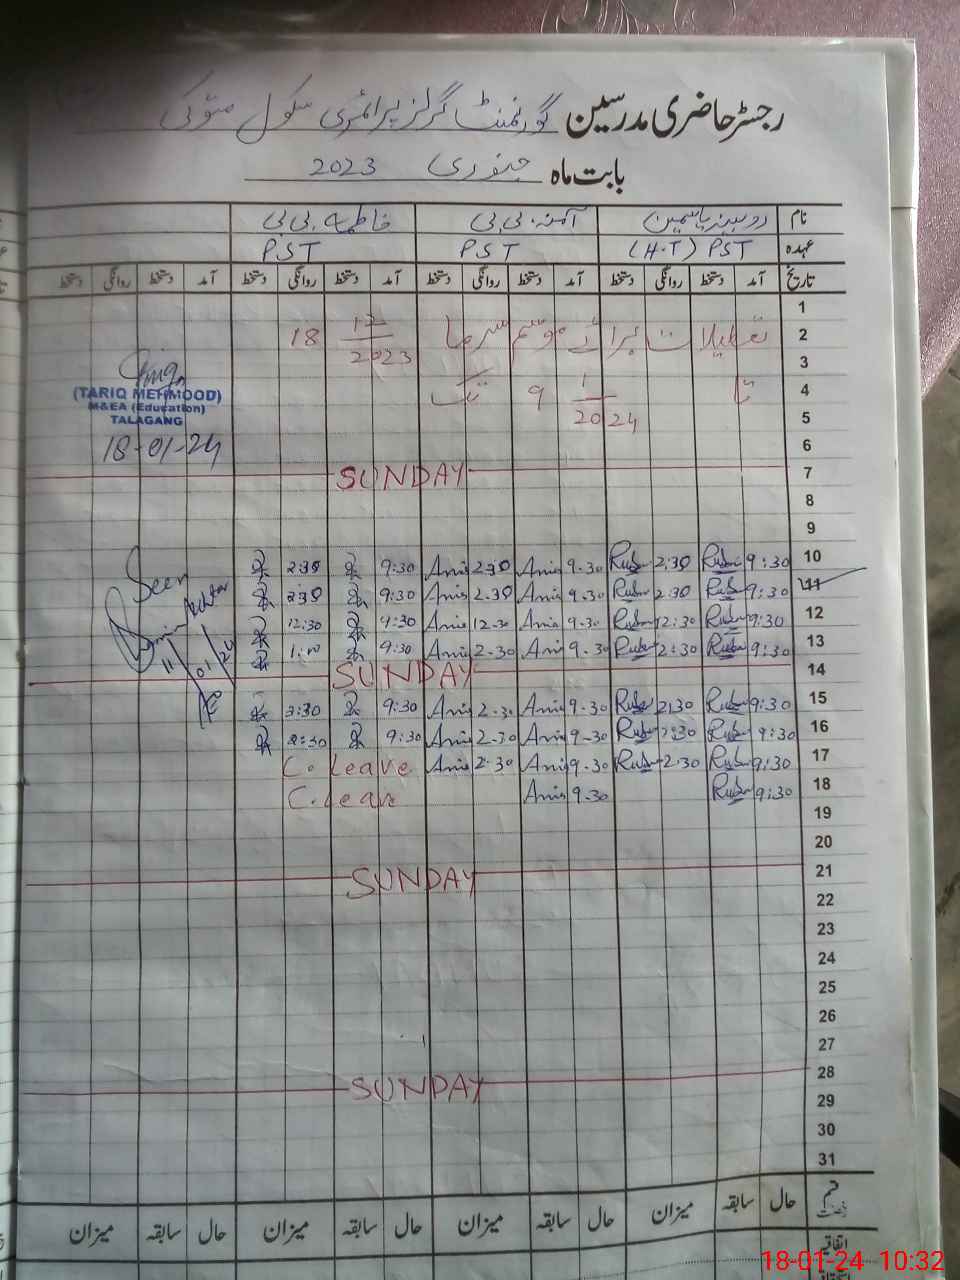 رجسٹر حاضری مدرسین گورنمنٹ گرلز پرائمری سکول
بابت ماہ جنوری 2023
نام روبینہ یاسمین آمنہ بی بی فاطمہ بی بی
عہدہ PST (H.T) PST PST
تاریخ آمد دستخط روانگی دستخط آمد دستخط روانگی دستخط آمد دستخط روانگی دستخط آمد دستخط روانگی دستخط
1
2 تعطیلات برائے موسم سرما 12/2023 18
3
4 تا 1/2024 9 تک
5
6
(TARIQ MEHMOOD)
M&EA (Education)
TALAGANG
18-01-24
7 SUNDAY
8
9
10 9:30 Rubi 2:30 Rubi 9.30 Anis 2.30 Anis 9:30 2:30
11 9:30 Rubi 2:30 Rubi 9.30 Anis 2.30 Anis 9:30 2:30
12 9:30 Rubi 12:30 Rubi 9.30 Anis 12.30 Anis 9:30 12:30
13 9:30 Rubi 2:30 Rubi 9.30 Anis 2.30 Anis 9:30
Seen
11/01/24
14 SUNDAY
15 9:30 Rubi 2:30 Rubi 9.30 Anis 2.30 Anis 9:30
16 9:30 Rubi 2:30 Rubi 9.30 Anis 2.30 Anis 9:30 2:30
17 9:30 Rubi 2.30 Rubi 9.30 Anis 2.30 Anis C. Leave
18 9:30 Rubi 9.30 Anis C. Leav
19
20
21 SUNDAY
22
23
24
25
26
27
28 SUNDAY
29
30
31
قسم رخصت حال سابقہ میزان حال سابقہ میزان حال سابقہ میزان حال سابقہ میزان
اتفاقیہ
18-01-24 10:32